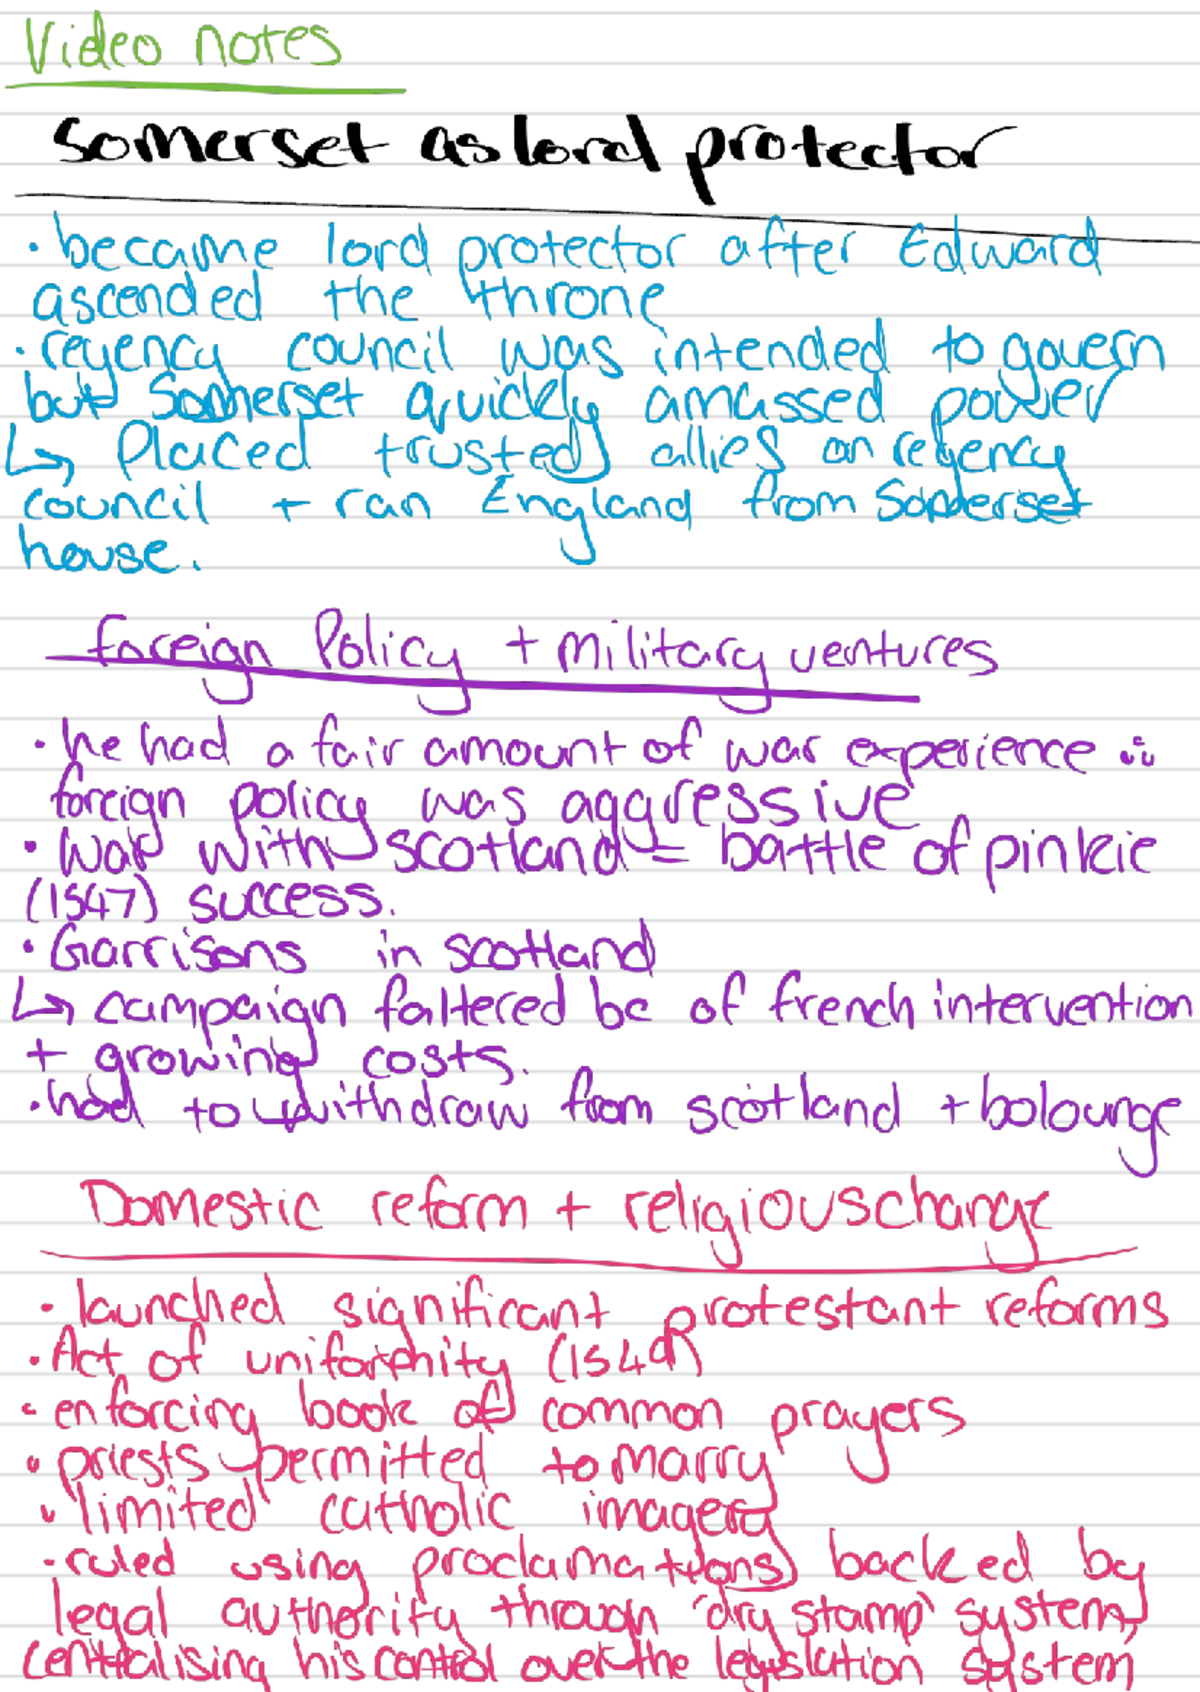 Video notes
Somerset as lord protector
· became lord protector after Edward
ascended the throne
· regency council was intended to govern
but Somerset quickly amassed power
↳ Placed trusted allies on regency
council + ran England from Somerset
house.
foreign Policy + military ventures
· he had a fair amount of war experience ∴
foreign policy was aggressive
· War with scotland = battle of pinkie
(1547) success.
· Garrisons in scotland
↳ campaign faltered bc of french intervention
+ growing costs.
· had to withdraw from scotland + bolounge
Domestic reform + religious change
· launched significant protestant reforms
· Act of uniformity (1549)
· enforcing book of common prayers
· priests permitted to marry
· limited catholic imagery
· ruled using proclamations backed by
legal authority through 'dry stamp' system,
centralising his control over the legislation system